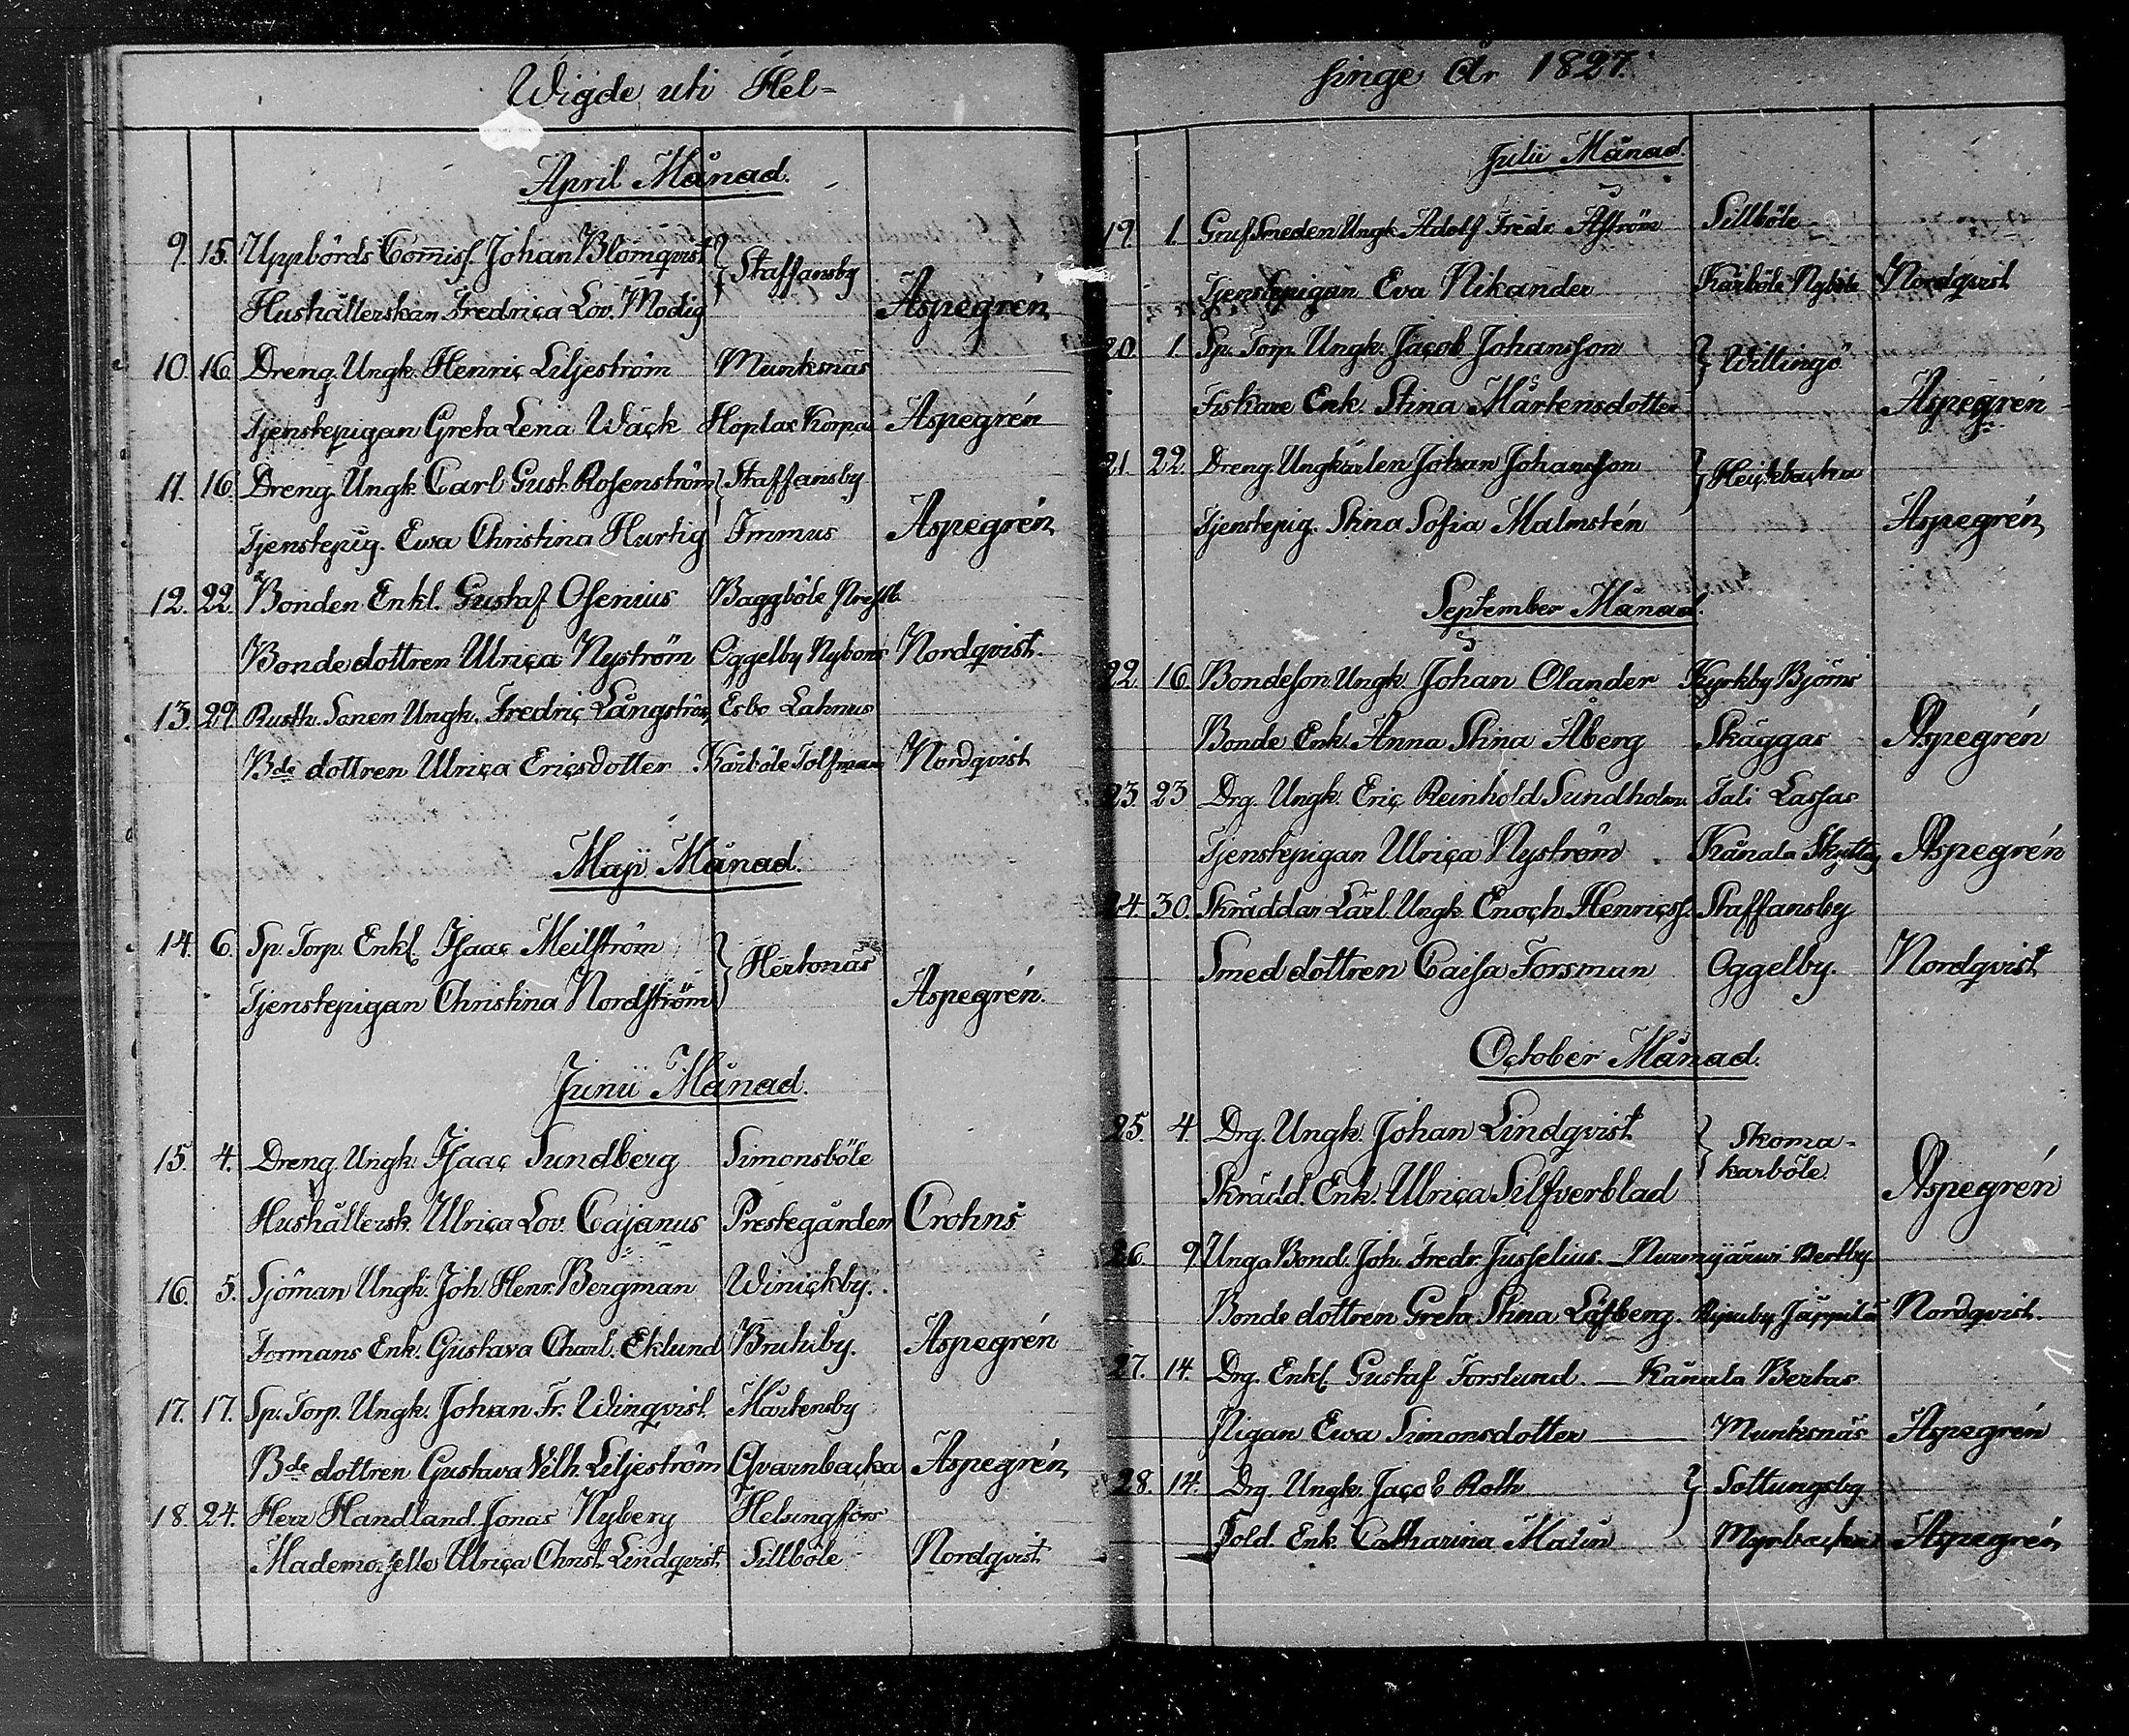 Wigde uti Hel-
April Månad.
9. 15. Uppbörds Commiss. Johan Blomqvist } Staffansby
Hushållerskan Fredrica Lov. Modig Aspegrén
10 16 Dreng. Ungk. Henric Liljeström Munksnäs
Tjenstepigan Greta Lena Wäck Hoplax Korpas Aspegrén
11. 16 Dreng. Ungk. Carl Gust. Rosenström } Staffansby
Tjenstepig. Ewa Christina Hurtig Immus Aspegrén
12. 22. Bonden Enkl. Gustaf Osenius Baggböle
Bondedottren Ulrica Nyström Oggelby Nybons Nordqvist.
13. 29. Rusth. Sonen Ungk. Fredric Långström Esbo Lahnus
Bde dottren Ulrica Ericsdotter Kårböle Tolfman Nordqvist
Maji Månad.
14. 6. Sp. Torp. Enkl. Isaac Meilström } Hertonäs
Tjenstepigan Christina Nordström Aspegrén.
Junii Månad.
15. 4. Dreng. Ungk. Isaac Sundberg Simonsböle
Hushållersk. Ulrica Lov. Cajanus Prestegården Crohns
16. 5. Sjöman Ungk. Joh. Henr. Bergman Winickby.
Formans Enk. Gustava Charl. Eklund Brutuby. Aspegrén
17. 17. Sp. Torp. Ungk. Johan Fr. Winqvist Mårtensby
Bde dottren Gustava Vilh. Liljeström Qvarnbacka Aspegrén
18. 24. Herr Handland. Jonas Nyberg Helsingfors
Mademoiselle Ulrica Christ. Lindqvist Sillböle Nordqvist
singe År 1827.
Julii Månad.
19. 1 Grufsmeden Ungk. Adolf Fredr. Åström Sillböle
Tjenstepigan Eva Nikander Kårböle Nyböle Nordqvist
20. 1 Sp. Torp. Ungk. Jacob Johansson } Willingö
Fiskare Enk. Stina Mårtensdotter Aspegrén
21. 22 Dreng. Ungkarlen Johan Johansson } Heickbacka
Tjenstepig. Stina Sofia Malmstén Aspegrén
September Månad.
22. 16. Bondeson. Ungk. Johan Olander Kyrkby Björns
Bonde Enk. Anna Stina Åberg Skäggas Aspegrén
23. 23 Drg. Ungk. Eric Reinhold Sundholm Tali Lassas
Tjenstepigan Ulrica Nyström Kånala Aspegrén
24. 30. Skräddar Lärl. Ungk. Enoch Henricss. Staffansby
Smed dottren Caisa Forsman Oggelby. Nordqvist
October Månad.
25. 4. Drg. Ungk. Johan Lindqvist } Skoma-
karböle.
Skrädd. Enk. Ulrica Silfverblad Aspegrén
26 9 Unga Bond. Joh. Fredr. Jusselius. — Nurmijärwi Bertby
Bonde dottren Greta Stina Löfberg. Jäppilä Nordqvist.
27. 14. Drg. Enkl. Gustaf Forslund. — Kånala Bertas
Pigan Ewa Simonsdotter — Munksnäs Aspegrén
28. 14. Drg. Ungk. Jacob Roth } Sottungsby
Sold. Enk. Catharina Malin Myrbacka Aspegrén